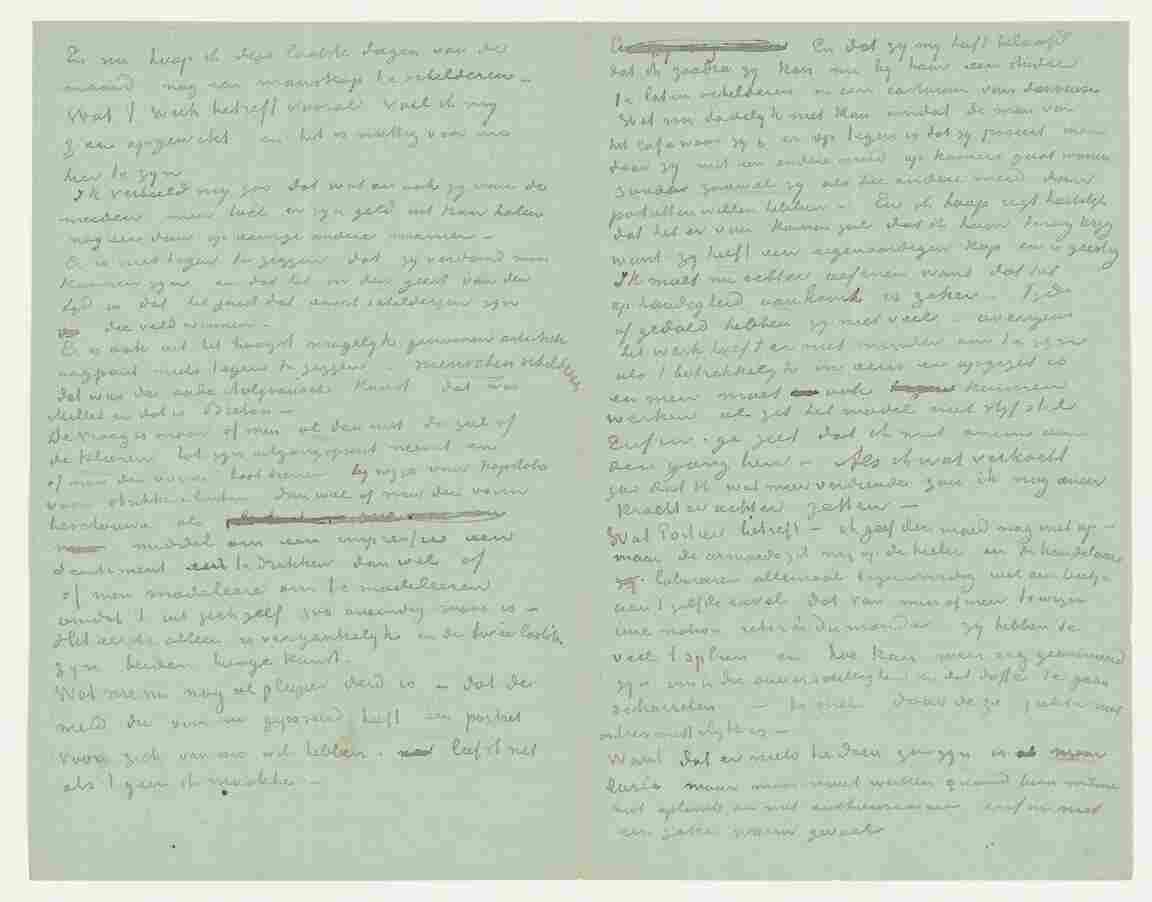 En nu hoop ik deze laatste dagen van de
maand nog een manskop te schilderen –
Wat 't werk betreft vooral voel ik my
zeer opgewekt en het is nuttig voor me
hier te zyn
Ik verbeeld my zoo dat wat en ook zy van de
meiden men toch er zyn geld uit kan halen
nog eer dan op eenige andere manier –
Er is niet tegen te zeggen dat zy verdomd mooi
kunnen zyn en dat het in den geest van den
tyd is dat het juist dat soort schilderyen zyn
die veld winnen –
Er is ook uit het hoogst mogelyk artistiek
oogpunt niets tegen te zeggen – menschen schilderen
dat was de oude Italiaansche kunst dat was
Millet en dat is Breton –
De vraag is maar of men al dan niet de ziel of
de kleeren tot zyn uitgangspunt neemt en
of men den vorm laat dienen by wyze van kapstok
voor strikken linten dan wel of men den vorm
beschouwe als
middel om een impressie een
sentiment uit te drukken dan wel of
of men modeleere om te modeleeren
omdat 't uit zichzelf zoo oneindig mooi is –
Het eerste alleen is vergankelyk en de twee laatste
zyn beiden hooge kunst.
Wat me nu nog al pleizier deed is – dat de
meid die voor me geposeerd heeft een portret
voor zich van me wil hebben. liefst net
als 't geen ik maakte –
En dat zy my heeft beloofd
dat ik zoodra zy kan me by haar een studie
te laten schilderen in een costuum van danseuse
Wat nu dadelyk niet kan omdat de man van
het café waar zy is er op tegen is dat zy poseert maar
daar zy met een andere meid op kamers gaat wonen
zouden zoowel zy als die andere meid daar
portretten willen hebben – En ik hoop regt hartelyk
dat het er van komen zal dat ik haar terug kryg
want zy heeft een eigenaardigen kop en is geestig
Ik moet nu echter oefenen want dat het
op handigheid aankomt is zeker – Tyd
of geduld hebben zy niet veel – overigens
het werk hoeft er niet minder om te zyn
als 't betrekkelyk in eens er opgezet is
en men moet ook kunnen
werken al zit het model niet styf stil
Enfin. ge ziet dat ik met animo aan
den gang ben – Als ik wat verkocht
zoo dat ik wat meer verdiende zou ik nog meer
kracht er achter zetten –
Wat Portier betreft – ik geef den moed nog niet op –
maar de armoede zit my op de hielen en de handelaars
laboreeren allemaal tegenwoordig wel een beetje
aan 't zelfde euvel dat van min of meer te wezen
une nation retirée du monde zy hebben te
veel 't spleen en hoe kan men erg geanimeerd
zyn om in die onverschilligheid en dat doffe te gaan
scharrelen – te meer daar deze ziekte nog
al besmettelyk is –
Want dat er niets te doen zou zyn is maar
larie maar men moet werken quand bien même
met aplomb en met enthousiasme enfin met
een zeker warm gevoel